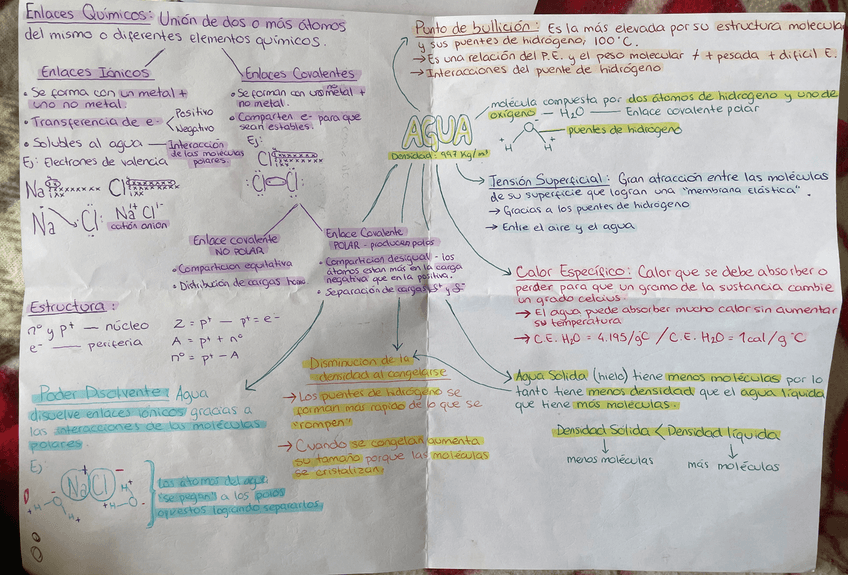 Enlaces Químicos: Unión de dos o más átomos
del mismo o diferentes elementos químicos.
Enlaces Iónicos
• Se forma con un metal +
uno no metal.
• Transferencia de e- Positivo
Negativo
• Solubles al agua — Interacción
de las moléculas
polares.
Ej: Electrones de valencia
Na Cl
Na Cl: Na Cl
catión anión
Enlaces Covalentes
• Se forman con un no metal +
no metal.
• Comparten e- para que
sean estables.
Ej:
Cl
Cl Cl
Enlace covalente
NO POLAR
• Compartición equitativa
• Distribución de cargas homo.
Enlace Covalente
POLAR - producen polos
• Compartición desigual - los
átomos estan más en la carga
negativa que en la positiva.
• Separación de cargas δ+ y δ-
Estructura:
n° y p+ — núcleo
e- — periferia
Z = p+ — p+ = e-
A = p+ + n°
n° = p+ - A
Poder Disolvente: Agua
disuelve enlaces iónicos gracias a
las interacciones de las moléculas
polares.
Ej
+ -
Na Cl
H O H H O H
los átomos del agua
"se pegan" a los polos
opuestos logrando separarlos.
Disminución de la
densidad al congelarse
→ Los puentes de hidrógeno se
forman más rapido de lo que se
"rompen"
→ Cuando se congelan aumenta
su tamaño porque las moléculas
se cristalizan.
AGUA
Densidad: 997 Kg/m³
Punto de bullición: Es la más elevada por su estructura molecular
y sus puentes de hidrógeno; 100°C.
→ Es una relación del P.E. y el peso molecular + pesada + dificil E.
→ Interacciones del puente de hidrógeno
molécula compuesta por dos átomos de hidrógeno y uno de
oxígeno — H2O — Enlace covalente polar
O
H H
puentes de hidrogeno
Tensión Superficial: Gran atracción entre las moléculas
de su superficie que logran una "membrana elástica".
→ Gracias a los puentes de hidrógeno
→ Entre el aire y el agua
Calor Específico: Calor que se debe absorber o
perder para que un gramo de la sustancia cambie
un grado celcius.
→ El agua puede absorber mucho calor sin aumentar
su temperatura
→ C.E. H2O = 4.195/gC / C.E. H2O = 1cal/g °C
Agua Solida (hielo) tiene menos moléculas por lo
tanto tiene menos densidad que el agua líquida
que tiene más moleculas.
Densidad Solida < Densidad líquida
menos moléculas más moléculas